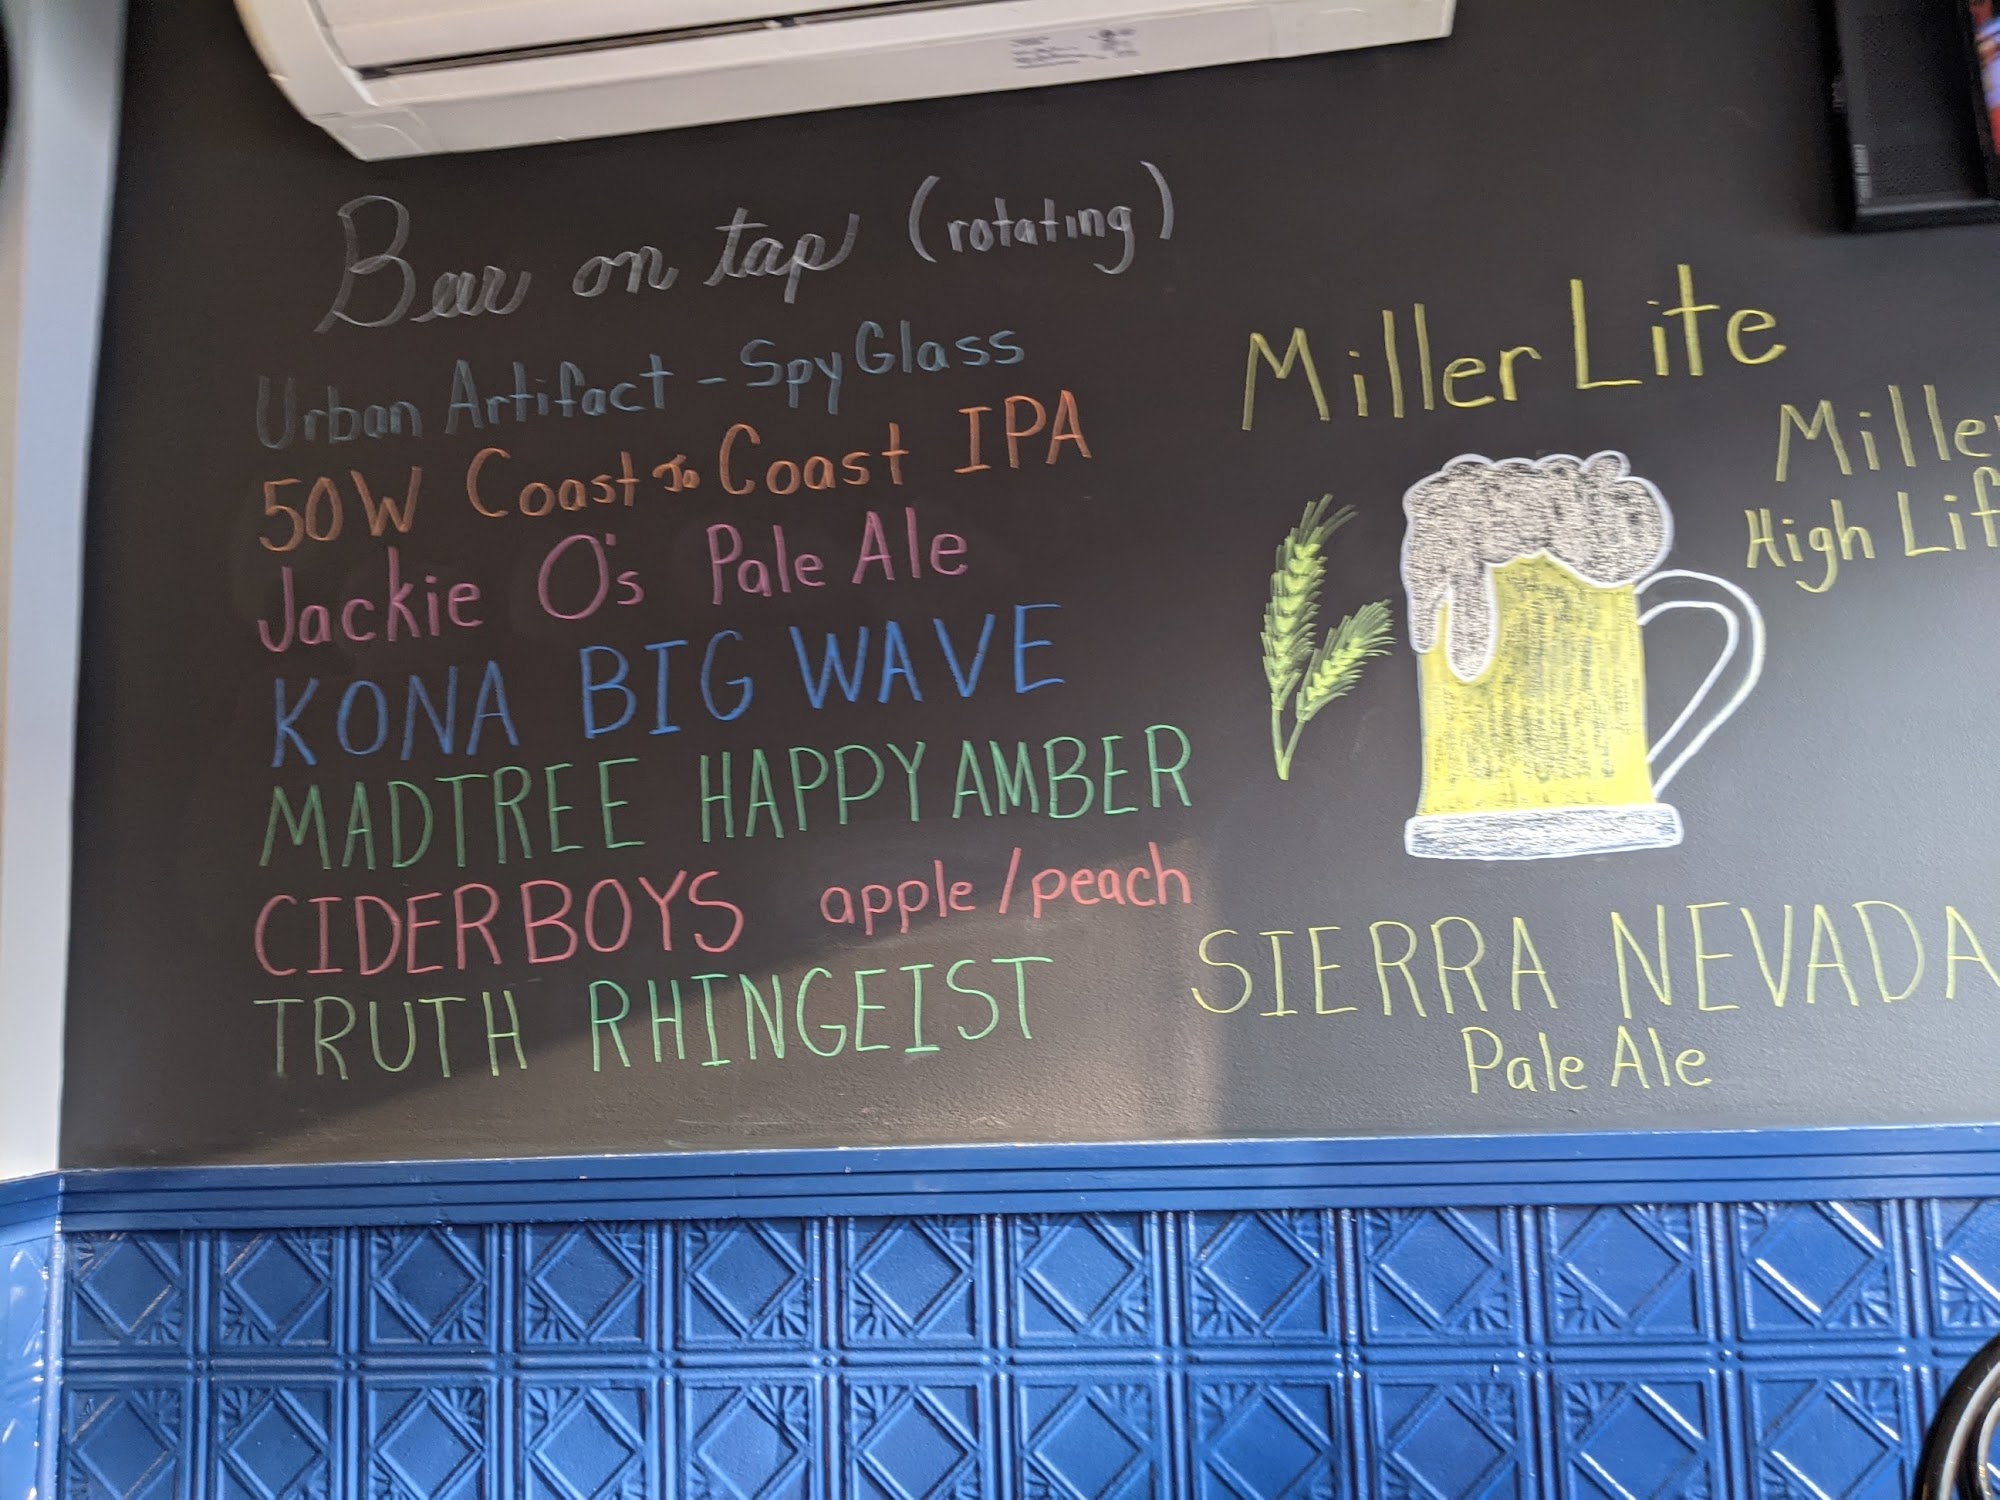 Bar on tap (rotating)
Urban Artifact - Spy Glass
50W Coast to Coast IPA
Jackie O's Pale Ale
KONA BIG WAVE
MADTREE HAPPY AMBER
CIDERBOYS apple/peach
TRUTH RHINGEIST
Miller Lite
Miller
High Lif
SIERRA NEVADA
Pale Ale